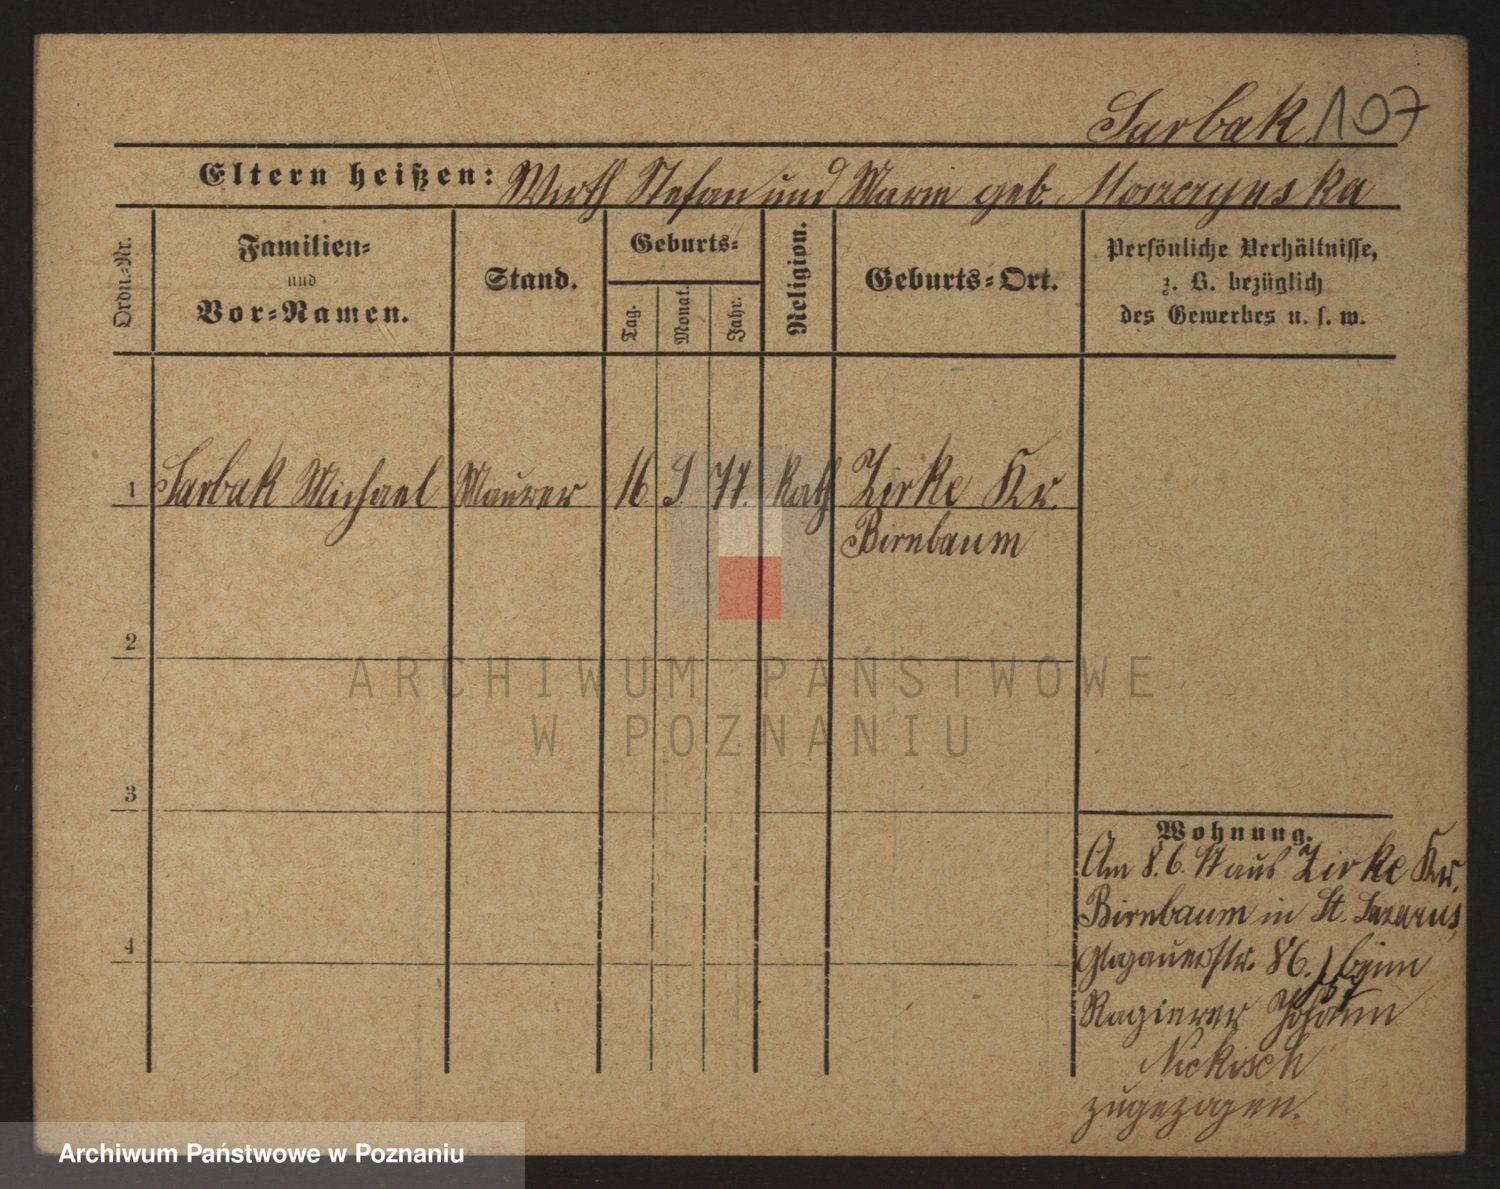 Sarbak 107
Eltern heißen: Wirth Stefan und Marie geb. Moszczynska
Ordn.-Nr.
Familien-
und
Vor-Namen.
Stand.
Geburts-
Tag.
Monat.
Jahr.
Religion.
Geburts-Ort.
Persönliche Verhältnisse,
z. B. bezüglich
des Gewerbes u. s. w.
1 Sarbak Michael Maurer 16. 9. 77. Kath Zirke Kr.
Birnbaum
2
3
4
Wohnung.
Am 8. 6. aus Zirke Kr.
Birnbaum in St. Lazarus,
Glogauerstr. 86. beim
Johann
Nickisch
zugezogen.
ARCHIWUM PAŃSTWOWE
W POZNANIU
Archiwum Państwowe w Poznaniu